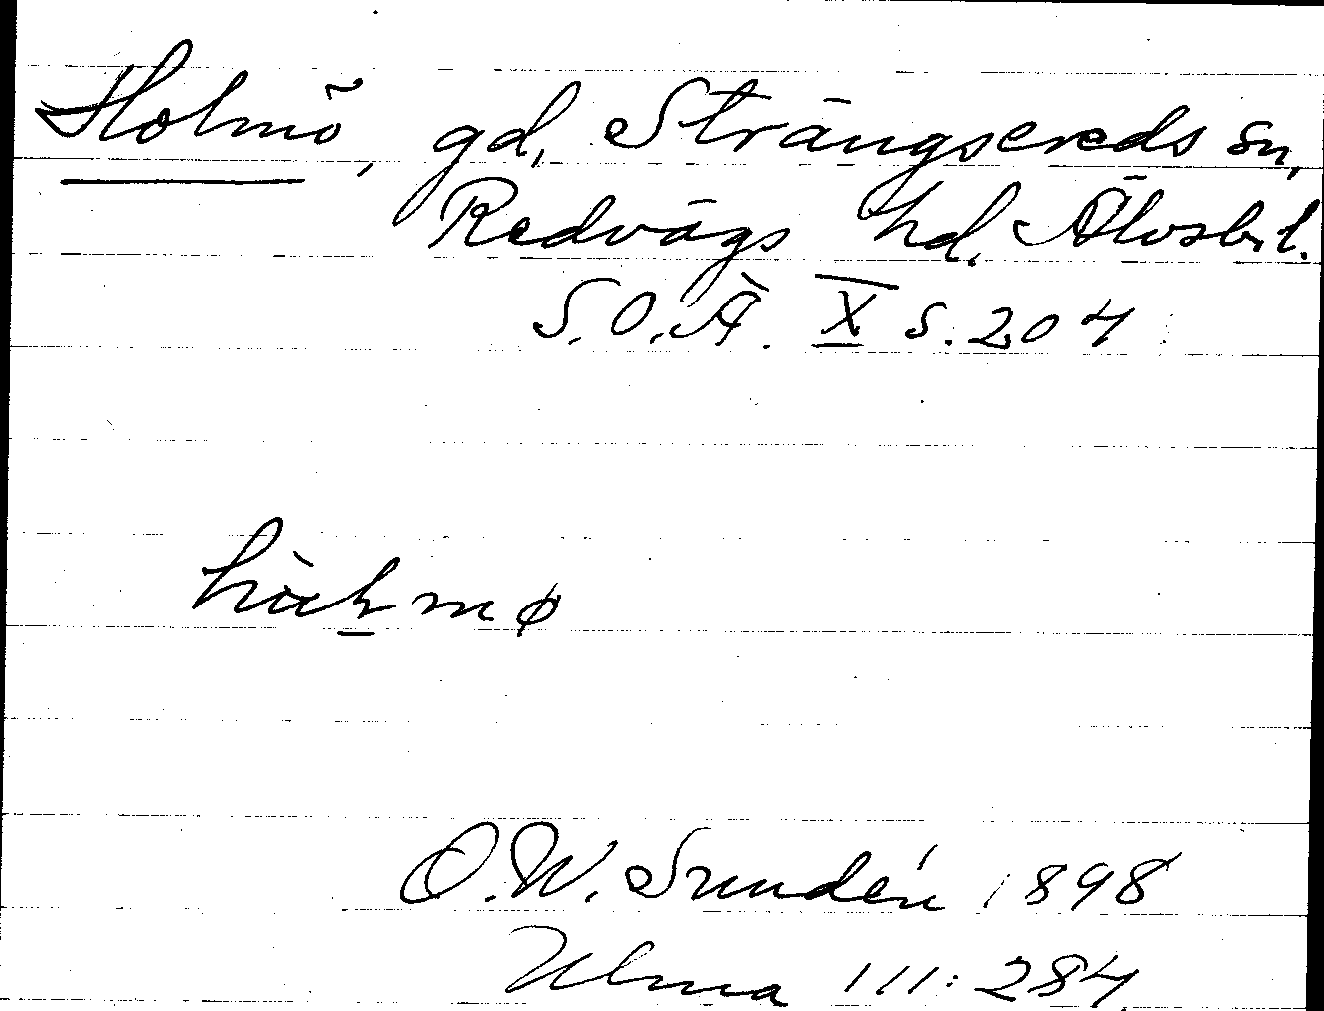 Holmö, gd, Strängsereds sn,
Redvägs hd, Älvsb. l.
S.O.Ä. X s. 204
O.W. Sundén 1898
Ulma 111:284